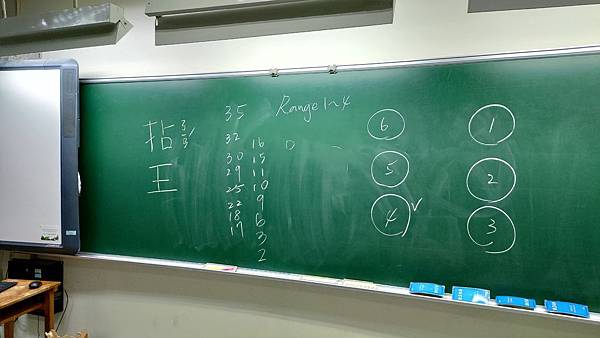 拈ㄋㄧㄢˊ
王
35
32
30
29
25
22
18
17
16
15
11
10
9
6
3
2
Range 1~4
6
5
4 ✓
1
2
3